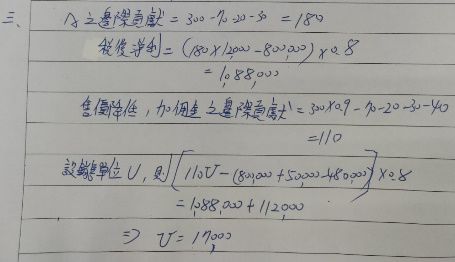 三、 A之邊際貢獻 = 300-70-20-30 = 180
稅後淨利 = (180×12,000-800,000)×0.8
= 1,088,000
售價降低，加佣金之邊際貢獻 = 300×0.9-70-20-30-40
= 110
設銷單位U, 則 [110U-(800,000+50,000-480,000)]×0.8
= 1,088,000+112,000
⇒ U = 17,000